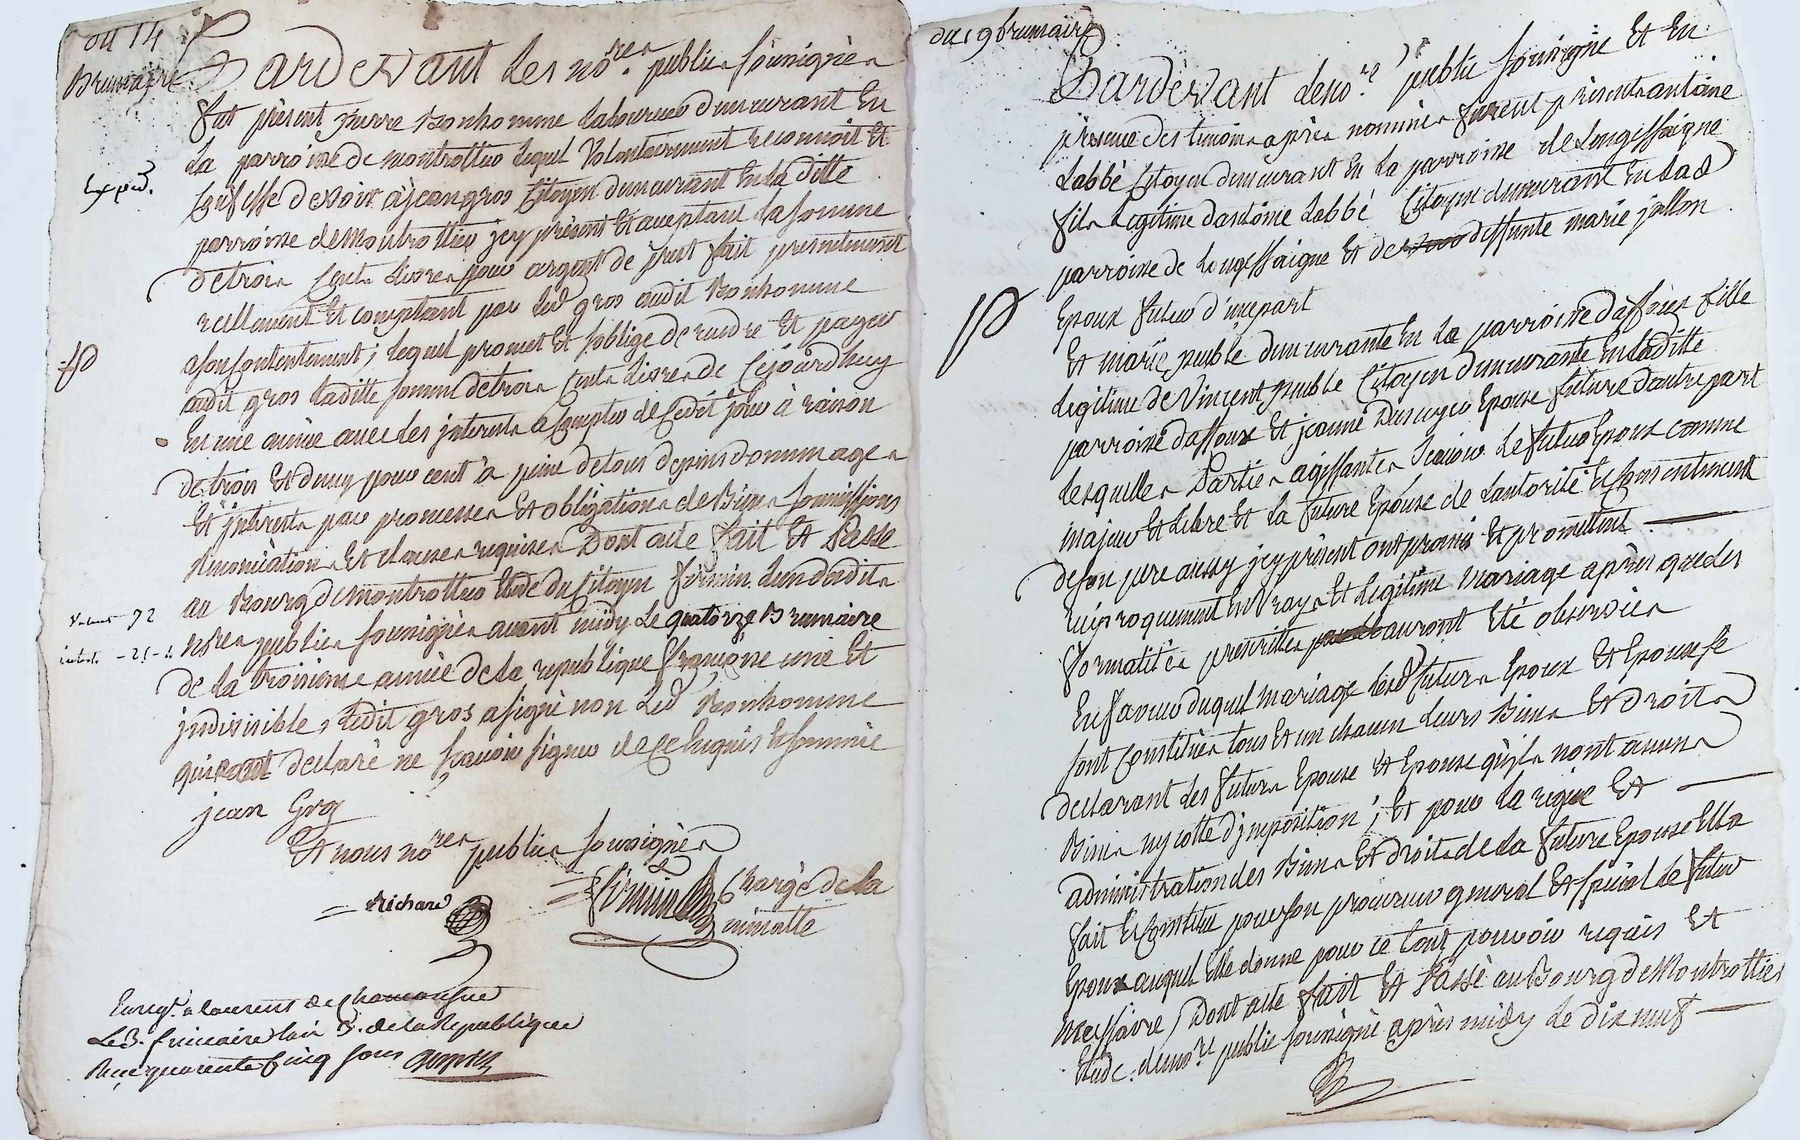 du 14
Brumaire
Pardevant les no.res publics soussignés
fut présent pierre Bonhomme laboureur demeurant En
la parroisse de montrottier lequel volontairement reconnoit Et
Expéd.
Confesse devoir à jean gros Citoyen demeurant En la ditte
parroisse de Montrottier jcy présent Et acceptant la somme
de trois Cents livres pour argent de prest fait présentement
réellement Et comptant par led gros audit Bonhomme
a son Contentement, lequel promet Et soblige de rendre Et payer
audit gros laditte somme de trois Cents livres de Cejourdhuy
En une année avec les jnterests a Compter de Cedit jour à raison
de trois Et demy pour cent à peine de tous dépens dommages
Et jnterests par promesses Et obligations de Biens soumissions
Renonciations Et clauses requises Dont acte fait Et Passé
au Bourg de Montrottier Etude du Citoyen firmin lun desdits
72
nores publics soussignés avant midy Le quatorze Brumaire
de la troisieme année de la republique française une Et
jndivisible, ledit gros a signé non led Bonhomme
qui a declaré ne sçavoir signer de ce Enquis Et sommé
jean Gros
Et nous no.res publics soussignés
Richard
firmin
Chargé de la
minutte
Enreg.é a laurent de Chamousset
Le 3. frimaire lan 3. de la Republique
Reçu quarante Cinq sous
du 19 brumaire
Pardevant le no.re public soussigné Et En
présence des temoins après nommés furent présents antoine
Labbé Citoyen demeurant En La parroisse de Longessaigne
fils Legitime dantoine Labbé Citoyen demeurant En lad
parroisse de Longessaigne Et de deffunte marie jullon
Epoux futur d'une part
Et marie peuble demeurante En La parroisse daffoux fille
legitime de Vincent peuble Citoyen demeurante En laditte
parroisse daffoux Et jeanne Epouse future dautre part
lesquelles Parties agissantes sçavoir le futur Epoux comme
majeur Et Libre Et la future Epouse de Lautorité Et Consentement
de son pere aussy jcy présent ont promis Et promettent
réciproquement En vray Et legitime Mariage après que les
formalités prescrittes auront Eté observées
En faveur duquel mariage lesd futurs Epoux Et Epouse se
sont Constitués tous Et un chacun leurs Biens Et droits
declarant les futurs Epouse Et Epouse qu'jls nont aucuns
Biens ny cotte d'jmposition; Et pour la régie Et
administration des Biens Et droits de la future Epouse Ella
fait Et Constitué pour son procureur general Et spécial le futur
Epoux auquel Elle donne pour ce tout pouvoir requis Et
necessaire, Dont acte fait Et Passé au Bourg de Montrottier
Etude du no.re public soussigné après midy le dix neuf